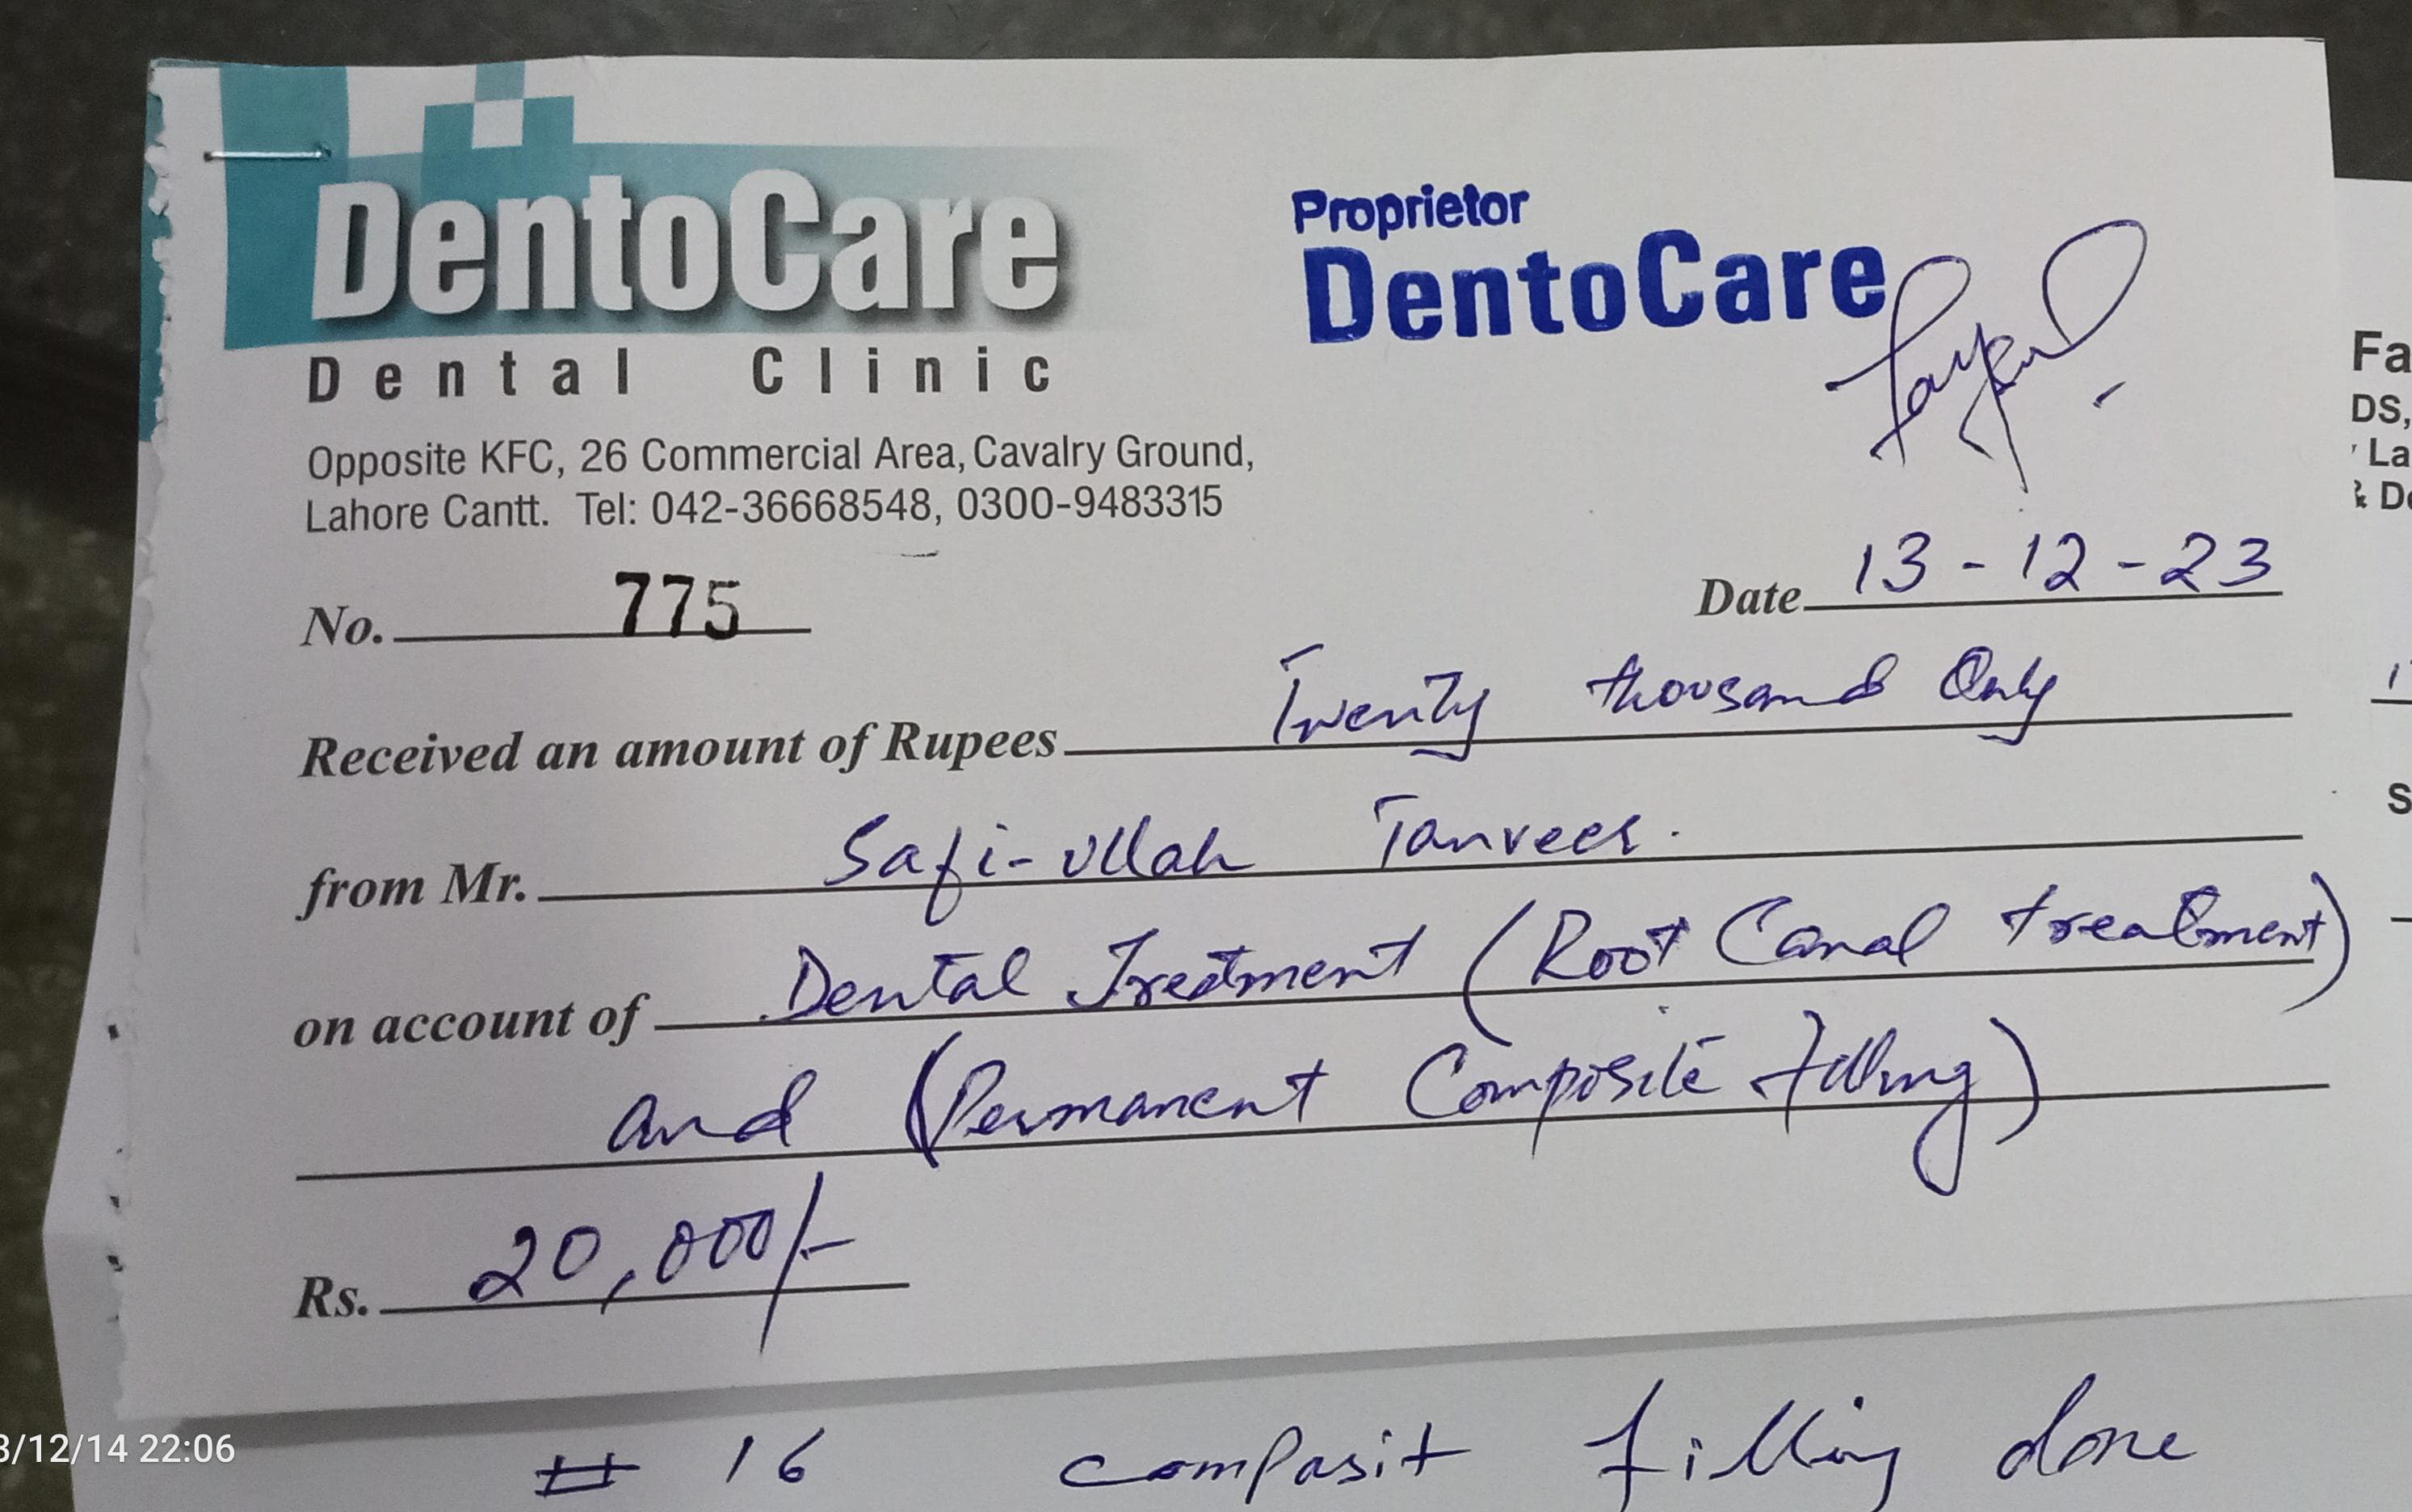 DentoCare
Dental Clinic
Opposite KFC, 26 Commercial Area, Cavalry Ground,
Lahore Cantt. Tel: 042-36668548, 0300-9483315
Proprietor
DentoCare
No. 775
Date 13-12-23
Received an amount of Rupees Twenty thousand Only
from Mr. Safi-ullah Tanveer.
on account of Dental Treatment (Root Canal treatment)
and (Permanent Composite filling)
Rs. 20,000/-
# 16 compasit filling done
Fa
DS,
La
& De
S
3/12/14 22:06